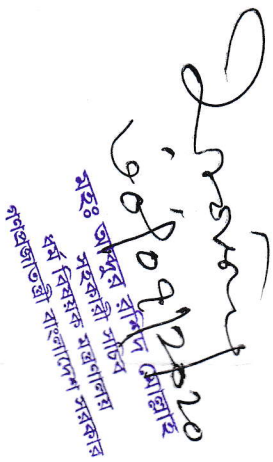 ৩০/০৭/২০২০
মোঃ আব্দুর রশিদ মোল্লাহ
সহকারী সচিব
ধর্ম বিষয়ক মন্ত্রণালয়
গণপ্রজাতন্ত্রী বাংলাদেশ সরকার